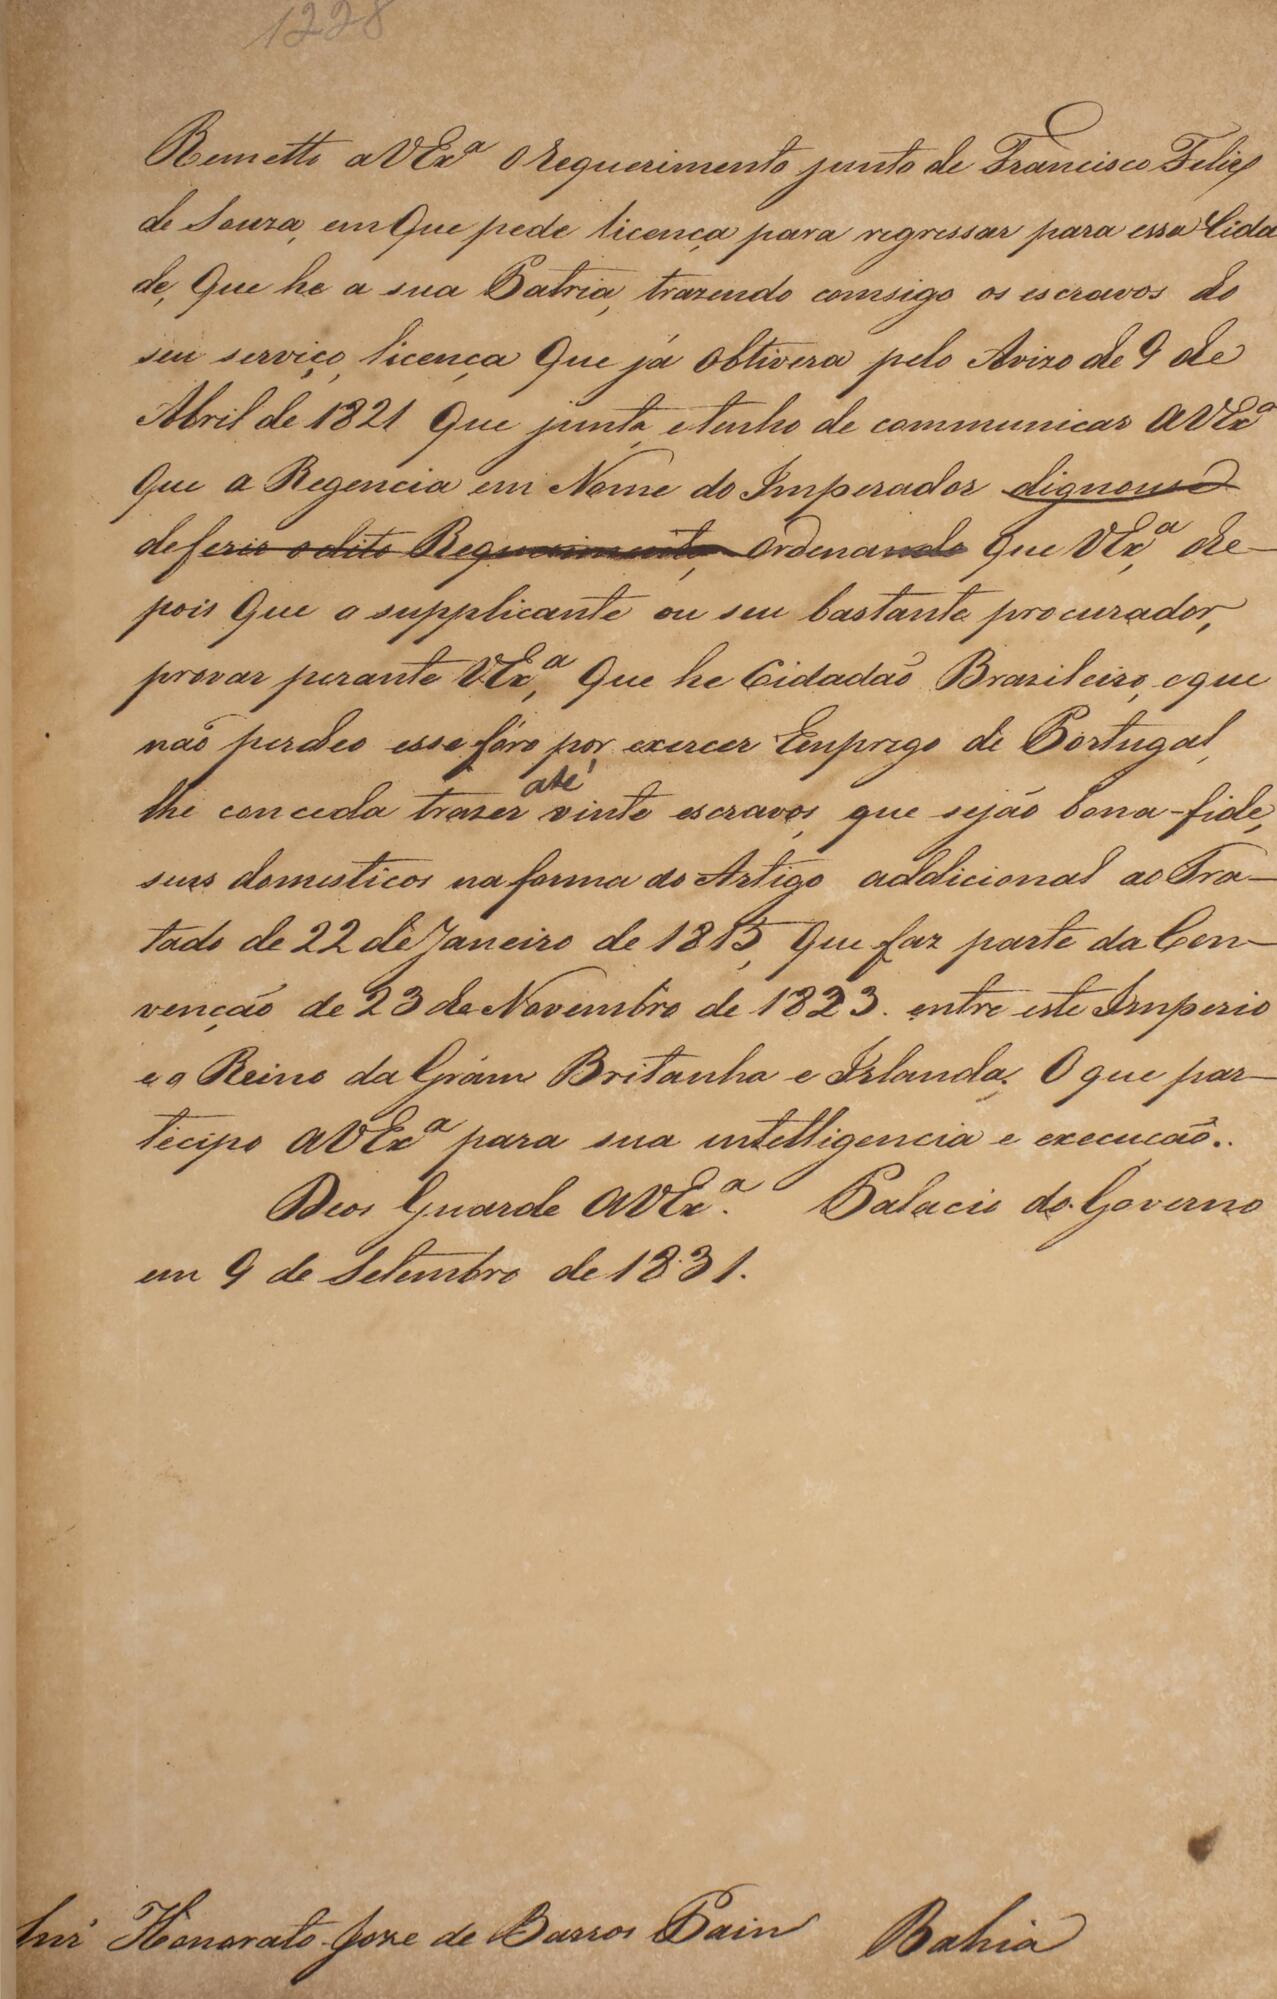 1228
Remetto a VEx.ª o requerimento junto de Francisco Felix
de Souza, em que pede licença para regressar para essa Cida
de, que he a sua Patria, trazendo comsigo os escravos do
seu serviço, licença que já obtivera pelo Avizo de 9 de
Abril de 1821 que junta, e tenho de communicar a VExª
que a Regencia em Nome do Imperador dignouse
deferir o dito Requerimento, Ordenando que VEx.ª, de-
pois que o supplicante ou seu bastante procurador,
provar perante VEx.ª, que he Cidadaõ Brazileiro, e que
naõ perdeo esse fóro por exercer Emprego de Portugal,
até
lhe conceda trazer vinte escravos, que sejão bona-fide,
seus domesticos na forma do Artigo addicional ao Tra-
tado de 22 de Janeiro de 1815, que faz parte da Con-
venção de 23 de Novembro de 1823. entre este Imperio
e o Reino da Grám Britanha e Irlanda. O que par-
tecipo a VEx.ª para sua intelligencia e execução..
Deos Guarde a VEx.ª. Palacio do Governo
em 9 de Setembro de 1831.
Snr' Honorato Joze de Barros Paim Bahia